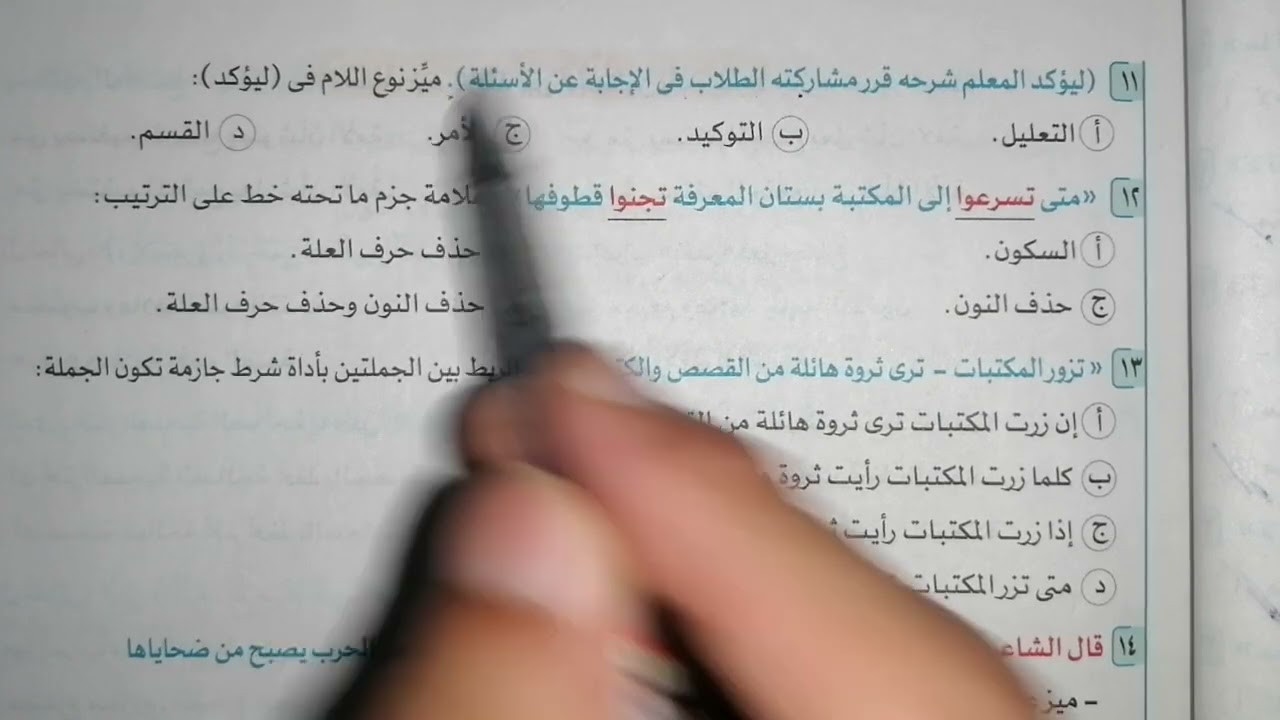 ١١ (ليؤكد المعلم شرحه قرر مشاركته الطلاب فى الإجابة عن الأسئلة). ميِّز نوع اللام فى (ليؤكد):
أ التعليل. ب التوكيد. ج د القسم.
١٢ «متى تسرعوا إلى المكتبة بستان المعرفة تجنوا قطوفها جزم ما تحته خط على الترتيب:
أ السكون. حذف حرف العلة.
ج حذف النون. حذف النون وحذف حرف العلة.
١٣ «تزور المكتبات - ترى ثروة هائلة من القصص الربط بين الجملتين بأداة شرط جازمة تكون الجملة:
أ إن زرت المكتبات ترى ثروة هائلة من
ب كلما زرت المكتبات رأيت ثروة
ج إذا زرت المكتبات رأيت
د متى تزر المكتبات
١٤ قال الحرب يصبح من ضحاياها